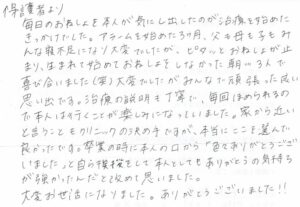 保護者より
毎日のおねしょを本人が気にし出したのが治療を始めた
きっかけでした。アラームを始めた3ヶ月、父も母も子もみ
んな寝不足になり大変でしたが、ピタッとおねしょが止
まり、生まれて始めておねしょをしなかった朝…3人で
喜び合いました(笑)大変でしたがみんなで頑張った良い
思い出です。治療の説明も丁寧で、毎回ほめられるの
で本人は行くことが楽しみになっていました。家から近い
と言うこともクリニックの決め手ですが、本当にここを選んで
良かったです。卒業の時に本人の口から「色々ありがとうござ
いました」と自ら挨拶をして本人としてもありがとうの気持ち
が強かったんだと改めて思いました。
大変お世話になりました。ありがとうございました!!